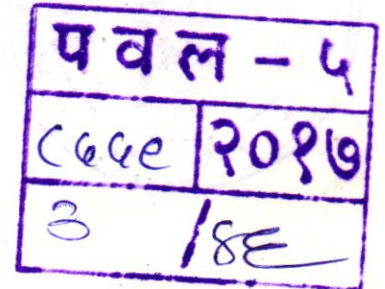 प व ल - ५
८७७९ २०१७
३ /४६